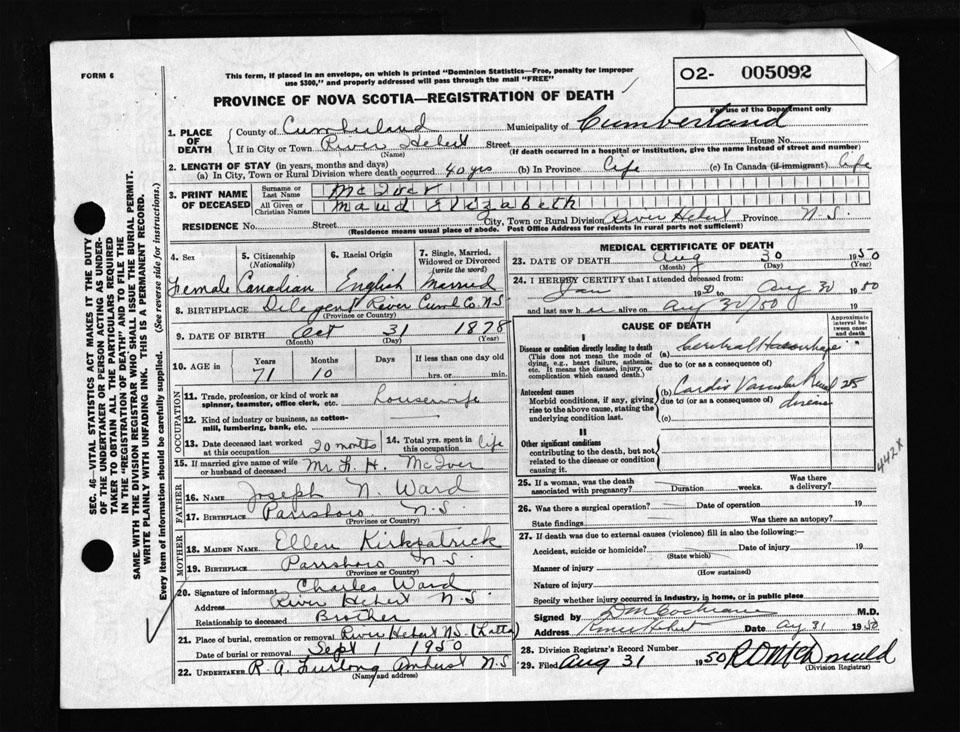 FORM 6
This form, if placed in an envelope, on which is printed "Dominion Statistics—Free, penalty for improper
use $300," and properly addressed will pass through the mail "FREE"
O2- 005092
For use of the Department only
PROVINCE OF NOVA SCOTIA—REGISTRATION OF DEATH
1. PLACE OF DEATH
County of Cumberland Municipality of Cumberland
If in City or Town River Hebert Street House No.
(Name) (If death occurred in a hospital or institution, give the name instead of street and number)
2. LENGTH OF STAY (in years, months and days)
(a) In City, Town or Rural Division where death occurred 40 yrs (b) In Province Life (c) In Canada (if immigrant) Life
3. PRINT NAME OF DECEASED
Surname or Last Name McIver
All Given or Christian Names Maud Elizabeth
RESIDENCE No. Street City, Town or Rural Division River Hebert Province N.S.
(Residence means usual place of abode. Post Office Address for residents in rural parts not sufficient)
4. Sex 5. Citizenship (Nationality) 6. Racial Origin 7. Single, Married, Widowed or Divorced (write the word)
Female Canadian English Married
8. BIRTHPLACE Diligent River Cumb Co. N.S
(Province or Country)
9. DATE OF BIRTH Oct 31 1878
(Month) (Day) (Year)
10. AGE in Years Months Days If less than one day old
71 10 hrs. or min.
OCCUPATION
11. Trade, profession, or kind of work as spinner, teamster, office clerk, etc. Housewife
12. Kind of industry or business, as cotton-mill, lumbering, bank, etc.
13. Date deceased last worked at this occupation 20 months 14. Total yrs. spent in this occupation life
15. If married give name of wife or husband of deceased Mr. H. H. McIver
FATHER
16. NAME Joseph N Ward
17. BIRTHPLACE Parrsboro N.S.
(Province or Country)
MOTHER
18. MAIDEN NAME Ellen Kirkpatrick
19. BIRTHPLACE Parrsboro N.S
(Province or Country)
20. Signature of informant Charles Ward
Address River Hebert N.S.
Relationship to deceased Brother
21. Place of burial, cremation or removal River Hebert N.S.
Date of burial or removal Sept 1 1950
22. UNDERTAKER R. A. Furlong Amherst N.S
(Name and address)
MEDICAL CERTIFICATE OF DEATH
23. DATE OF DEATH Aug 30 1950
(Month) (Day) (Year)
24. I HEREBY CERTIFY that I attended deceased from:
Jan 1950 to Aug 30 1950
and last saw her alive on Aug 30/50 19
CAUSE OF DEATH
Approximate interval between onset and death
I
Disease or condition directly leading to death
(This does not mean the mode of dying, e.g., heart failure, asthenia, etc. It means the disease, injury, or complication which caused death.)
(a) Cerebral Haemorrhage
due to (or as a consequence of)
Antecedent causes
Morbid conditions, if any, giving rise to the above cause, stating the underlying condition last.
(b) Cardio Vascular Renal disease
due to (or as a consequence of)
(c)
II
Other significant conditions
contributing to the death, but not related to the disease or condition causing it.
442X
25. If a woman, was the death associated with pregnancy? Duration weeks. Was there a delivery?
26. Was there a surgical operation? Date of operation 19
State findings Was there an autopsy?
27. If death was due to external causes (violence) fill in also the following:—
Accident, suicide or homicide? Date of injury 19
(State which)
Manner of injury
(How sustained)
Nature of injury
Specify whether injury occurred in industry, in home, or in public place
Signed by D M Cochrane M.D.
Address River Hebert Date Aug 31 1950
28. Division Registrar's Record Number
29. Filed Aug 31 1950
(Division Registrar)
SEC. 46—VITAL STATISTICS ACT MAKES IT THE DUTY
OF THE UNDERTAKER OR PERSON ACTING AS UNDER-
TAKER TO OBTAIN ALL THE PARTICULARS REQUIRED
IN THE "REGISTRATION OF DEATH" AND TO FILE THE
SAME WITH THE DIVISION REGISTRAR WHO SHALL ISSUE THE BURIAL PERMIT.
WRITE PLAINLY WITH UNFADING INK. THIS IS A PERMANENT RECORD.
Every item of information should be carefully supplied. (See reverse side for instructions.)